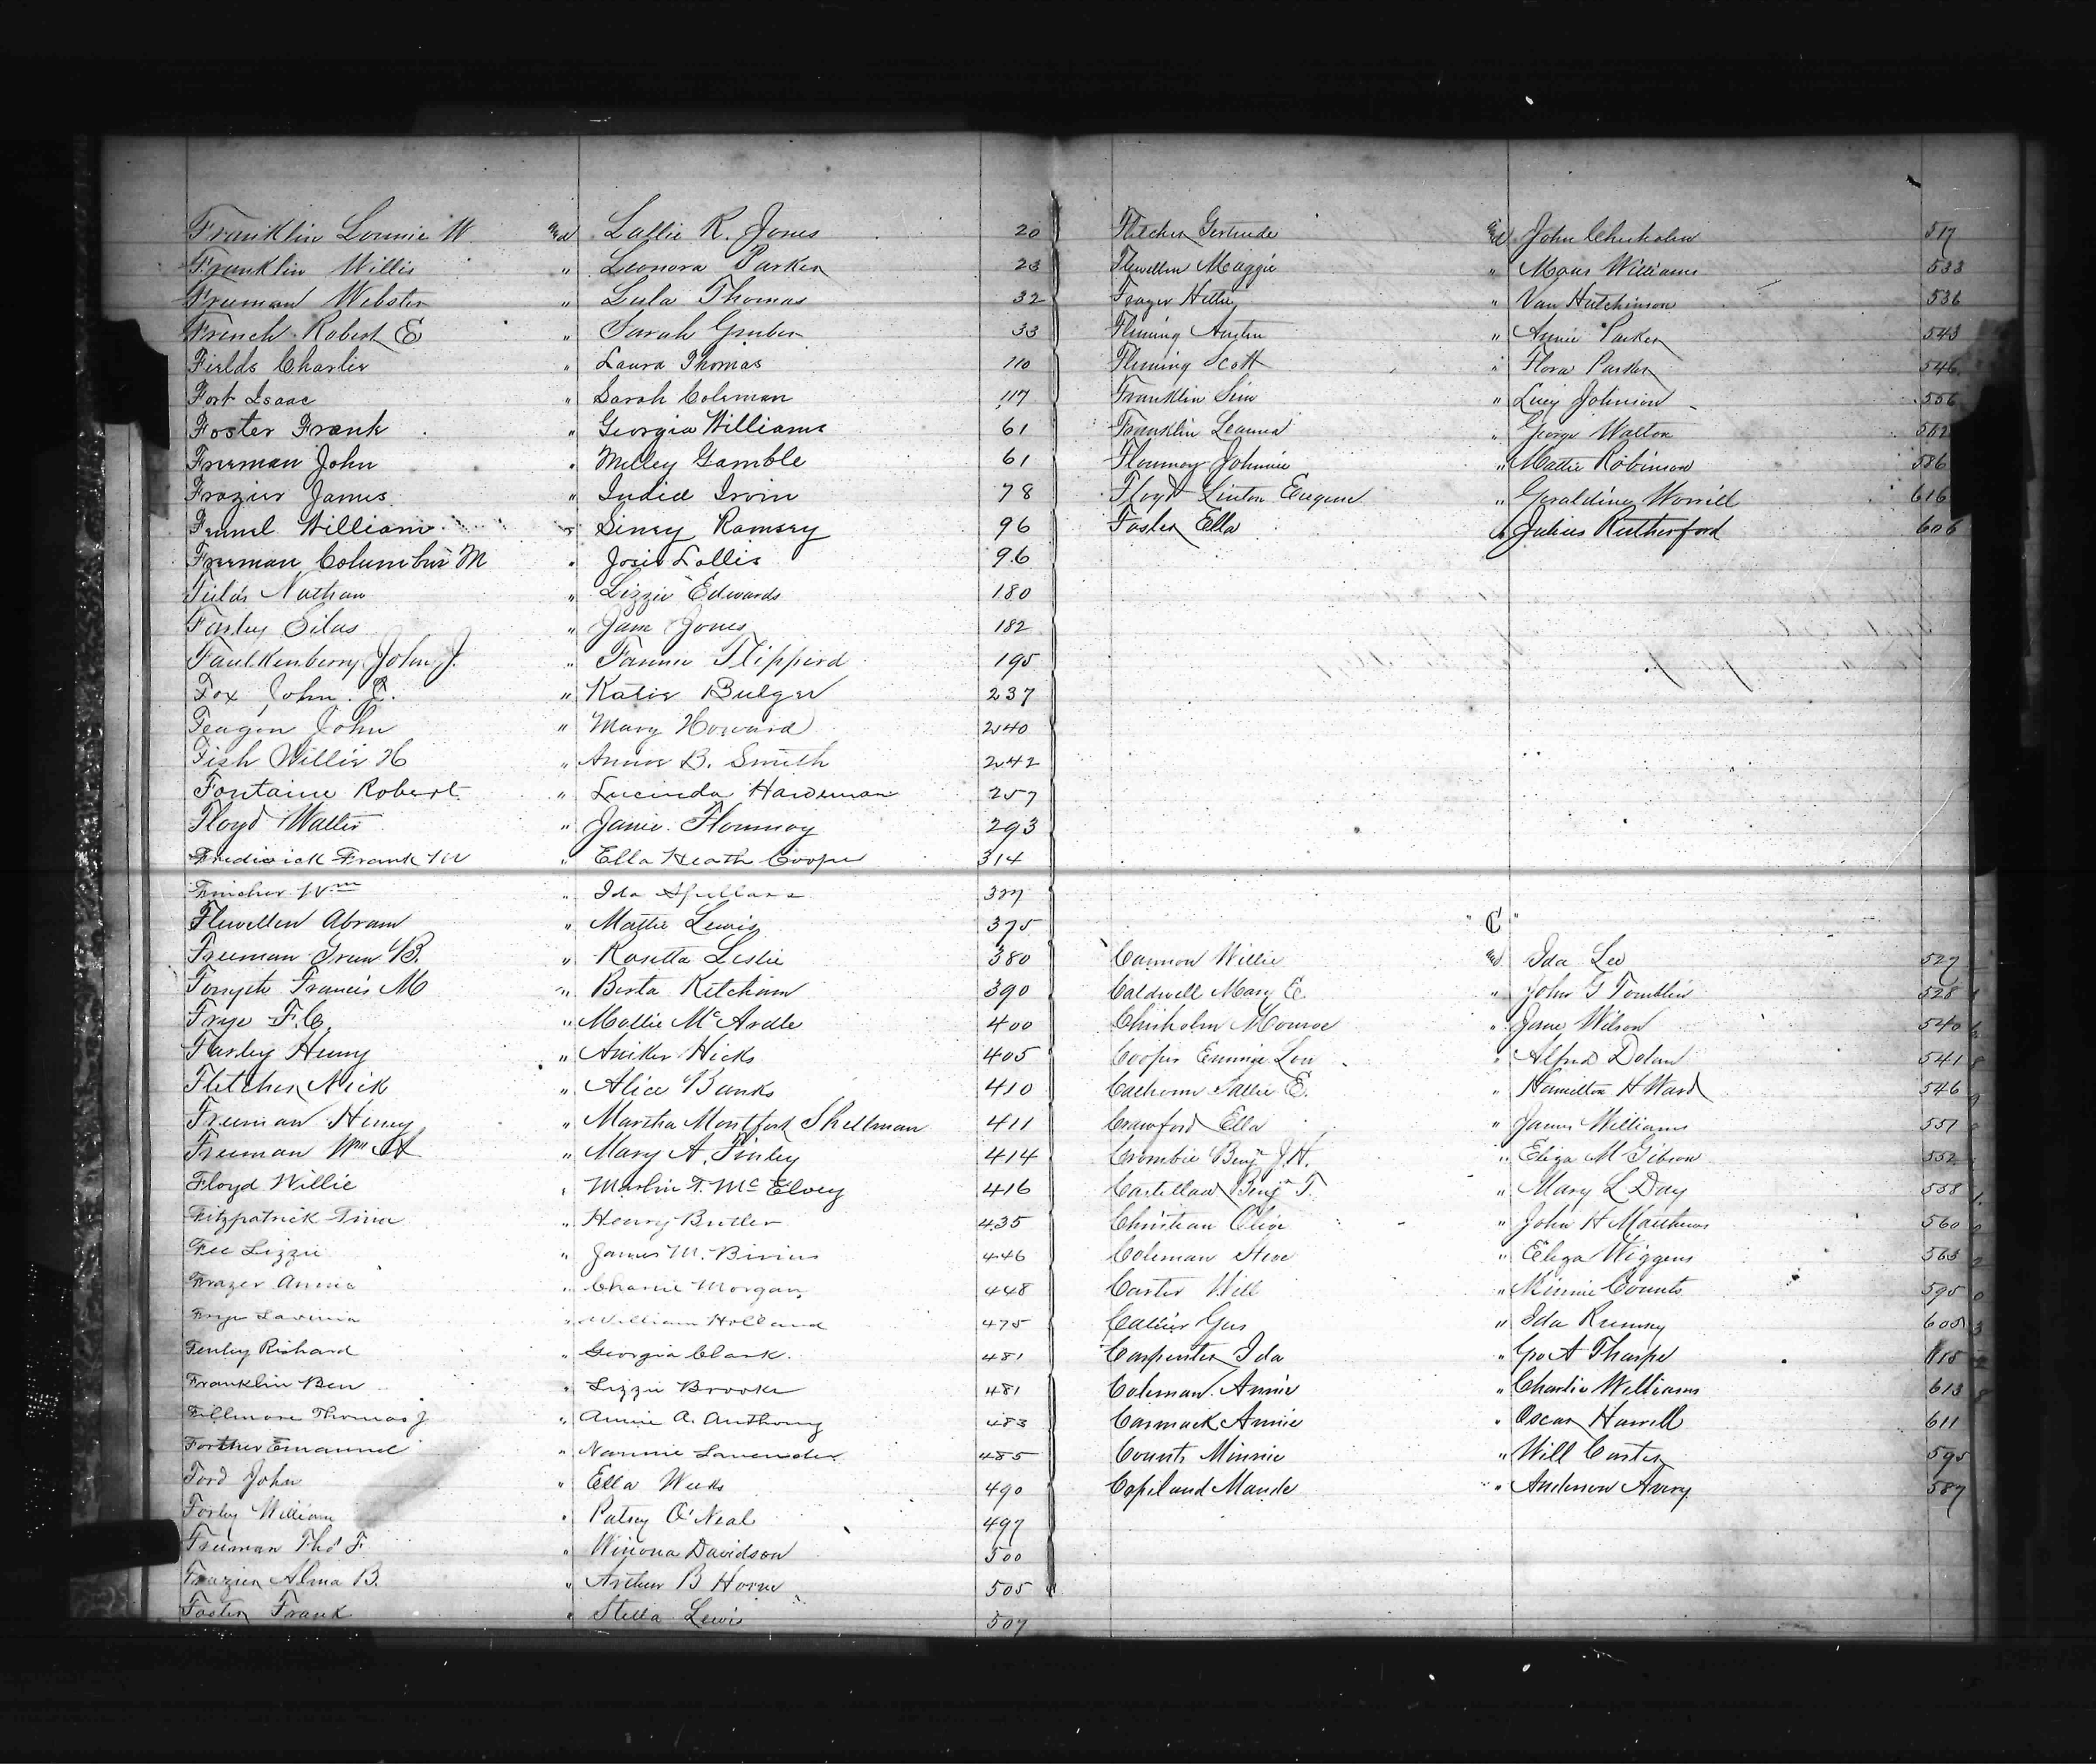 Franklin Lonnie W. and Lallie R. Jones 20
Franklin Willis " Leonora Parker 23
Freeman Webster " Lula Thomas 32
French Robert E " Sarah Gruber 33
Fields Charlie " Laura Thomas 110
Fort Isaac " Sarah Coleman 117
Foster Frank " Georgia Williams 61
Freeman John " Milley Gamble 61
Frazier James " India Irvin 78
William " Ramsey 96
Freeman Columbus M " Josie Lollis 96
Fields Nathan " Lizzie Edwards 180
Farley Silas " Jane Jones 182
Faulkenberry John J. " Fannie Flipperd 195
Fox, John. E. " Katie Bulger 237
Feagin John " Mary Howard 240
Fish Willie H " Annie B. Smith 242
Fontaine Robert " Lucinda Hardeman 257
Floyd Walter " Janie Flournoy 293
Frederick Frank M " Ella Heath Cooper 314
Fincher Wm " Ida 327
Flewellen Abram " Mattie Lewis 375
Freeman B. " Rosetta Leslie 380
Forsyth Francis M " Berta Ketcham 390
Frye F. C. " Mollie McArdle 400
Farley Henry " Hicks 405
Fletcher Nick " Alice Banks 410
Freeman Henry " Martha Montfort Shellman 411
Freeman Wm H " Mary A. Finley 414
Floyd Willie " T. McElvey 416
Fitzpatrick Tina " Henry Butler 435
Fee Lizzie " James M. Bivins 446
Frazer Annie " Charlie Morgan 448
Frye Lavinia " William Holland 475
Fenley Richard " Georgia Clark. 481
Franklin Ben " Lizzie Brooks 481
Fillmore Thomas J " Annie A. Anthony 483
Emanuel " Nannie Lavender 485
Ford John " Ella Weeks 490
Farley William " Patsey O'Neal 497
Freeman Thos F. " Winona Davidson 500
Frazier Alma B. " Arthur B Horne 505
Foster Frank " Stella Lewis 507
Fletcher Gertrude and John Chisholm 517
Flewellen Maggie " Williams 533
Frazer Hettie " Van Hutchinson 536
Fleming Austin " Annie Parker 543
Fleming Scott " Flora Parker 546
Franklin Sim " Lucy Johnson 556
Franklin Leanna " George Walton 562
Flournoy Johnnie " Mattie Robinson 586
Floyd Linton Eugene " Geraldine Worrill 616
Foster Ella " Julius Rutherford 606
" C "
Cannon Willie and Ida Lee 527
Caldwell Mary E. " John G Tomblin 528
Chisholm Monroe " Jane Wilson 540
Cooper Emma Lou " Alfred Dolan 541
Calhoun Sallie E. " Hamilton H Ward 546
Crawford Ella " James Williams 551
Crombie Benj J. H. " Eliza M Gibson 552
Castellaw Benj T. " Mary L Day 558
Christian Olive " John H Matthews 560
Coleman Steve " Eliza Wiggens 563
Carter Will " Minnie Counts 595
Callier Gus " Ida Rumney 605
Carpenter Ida " Geo A Tharpe 615
Coleman Annie " Charlie Williams 613
Carmack Annie " Oscar Harrell 611
Counts Minnie " Will Carter 595
Copeland Maude " Anderson Avery 587